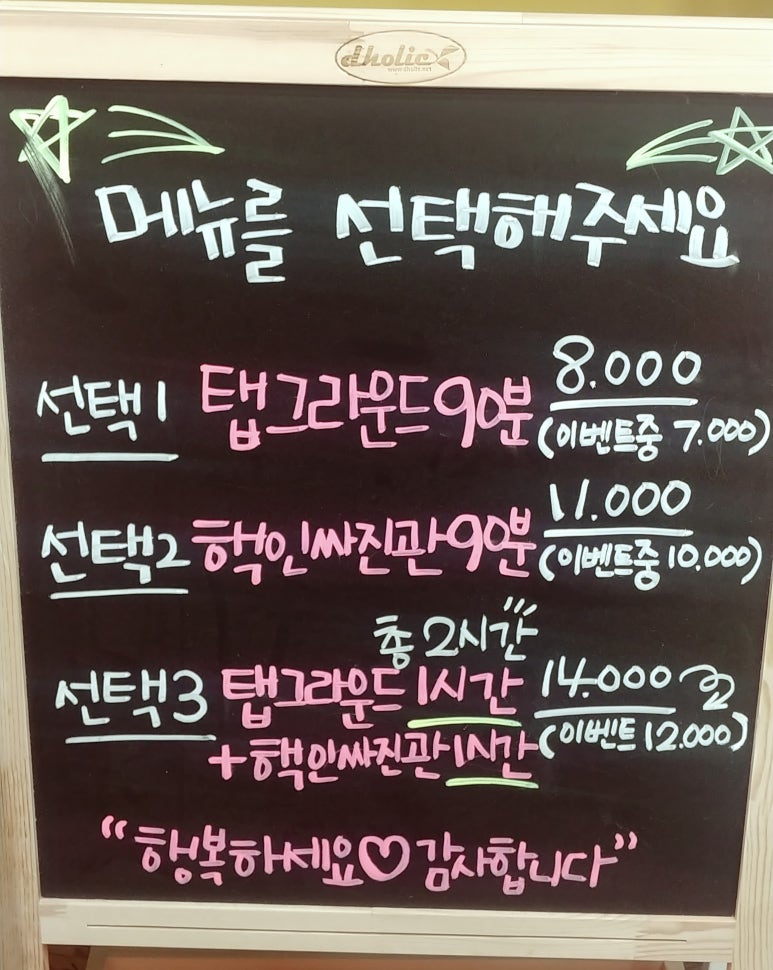 dholic
www.dholic.net
메뉴를 선택해주세요
선택1 탭그라운드90분 8.000
(이벤트중 7.000)
선택2 핵인싸진관90분 11.000
(이벤트중 10.000)
총 2시간
선택3 탭그라운드 1시간 14.000
+핵인싸진관1시간 (이벤트 12.000)
“행복하세요♡감사합니다”